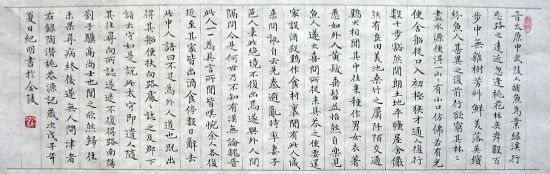 晉太原中武陵人捕魚為業緣溪行
忘路之遠近忽逢桃花林夾岸數百
步中無雜樹芳草鮮美落英繽
紛漁人甚異之復前行欲窮其林林
盡水源便得一山山有小口仿佛若有光
便舍船從口入初極狹才通人復行
數十步豁然開朗土地平曠屋舍儼
然有良田美池桑竹之屬阡陌交通
雞犬相聞其中往來種作男女衣著
悉如外人黃髮垂髫並怡然自樂見
漁人乃大驚問所從來具答之便要還
家設酒殺雞作食村中聞有此人咸
來問訊自云先世避秦時亂率妻子
邑人來此絕境不復出焉遂與外人間
隔問今是何世乃不知有漢無論魏晉
此人一一為具言所聞皆嘆惋餘人各復
延至其家皆出酒食停數日辭去
此中人語曰不足為外人道也既出
得其船便扶向路處處誌之及郡下
詣太守說如此太守即遣人隨
其往尋向所誌遂迷不復得路南陽
劉子驥高尚士也聞之欣然歸往
未果尋病終後遂無人問津者
右錄陶潛桃花源記歲次戊子年
夏日紀明書於金陵